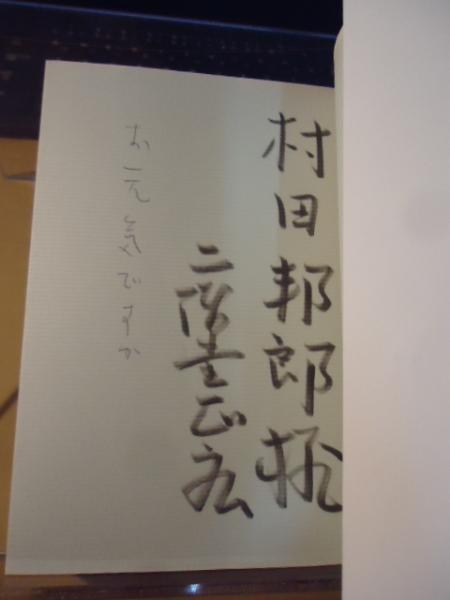 村田邦郎様
二階堂正宏
お元気ですか